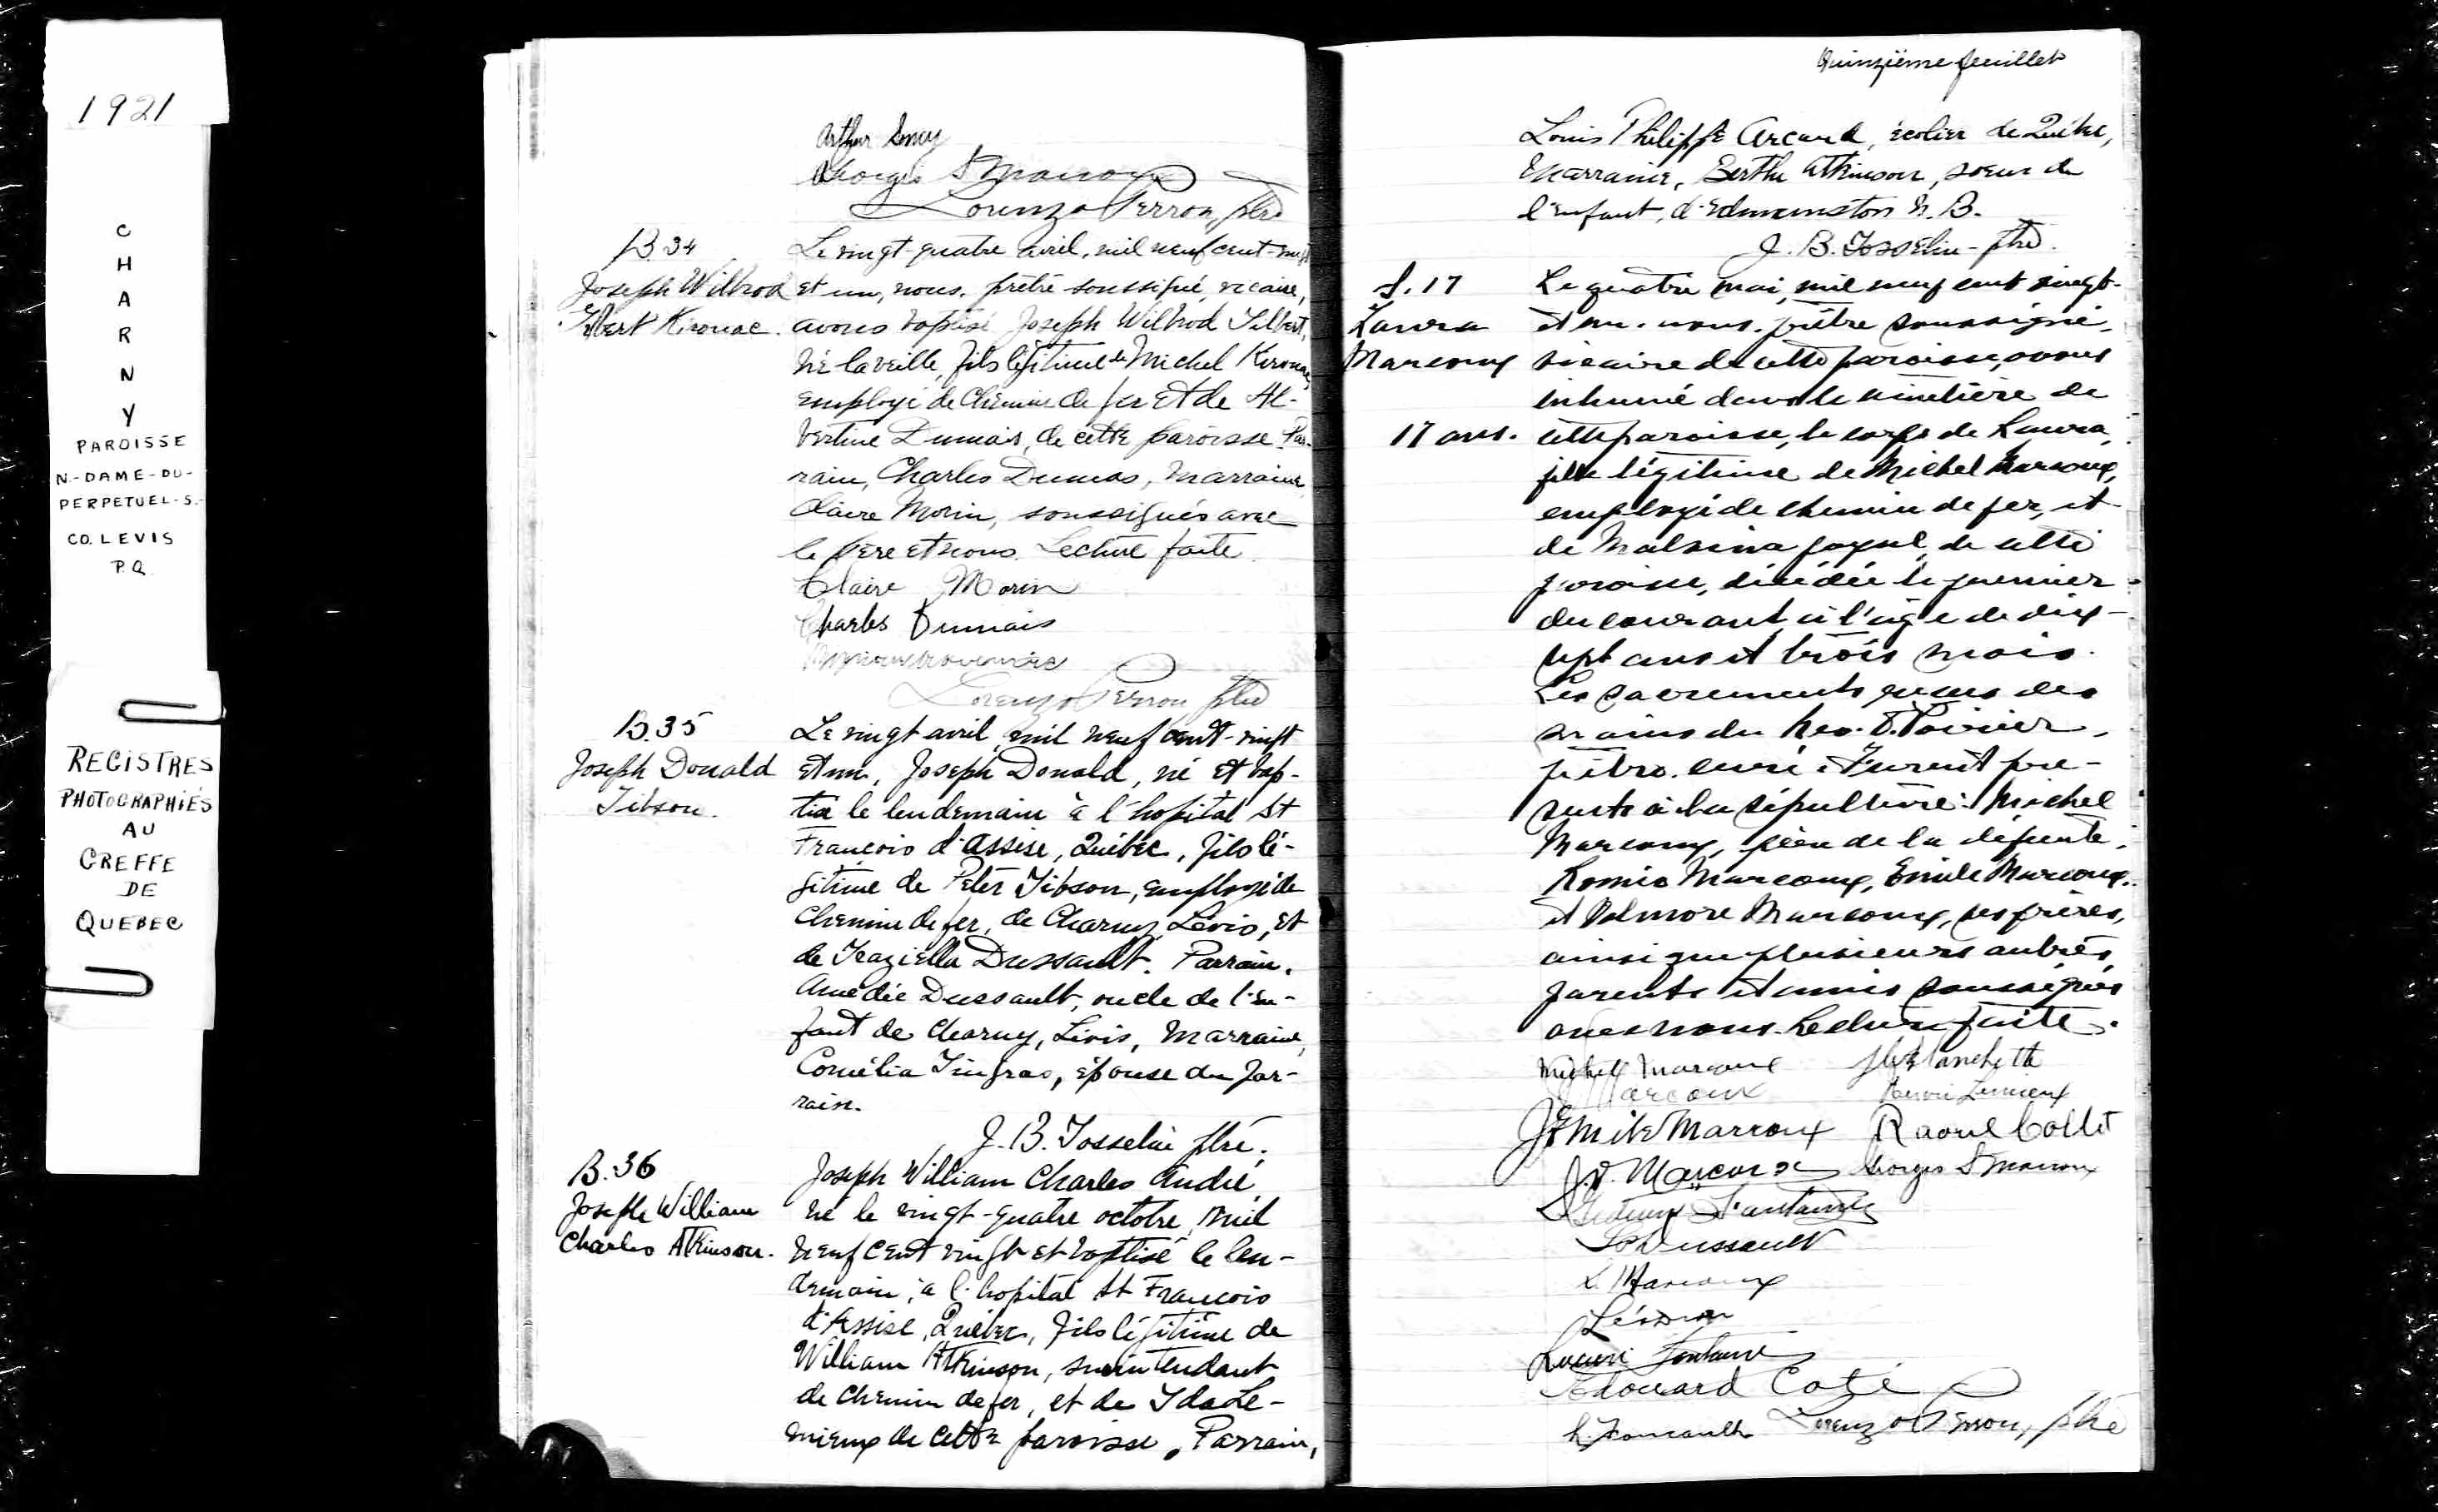 1921
C
H
A
R
N
Y
PAROISSE
N.-DAME-DU-
PERPETUEL-S.-
CO. LEVIS
P.Q.
REGISTRES
PHOTOGRAPHIÉS
AU
GREFFE
DE
QUEBEC
Arthur
Georges
Lorenzo Perron, ptre
B.34
Joseph Wilbrod
Kirouac.
Le vingt-quatre avril, mil neuf cent-vingt
et un, nous, prêtre soussigné, vicaire,
avons baptisé Joseph Wilbrod
né la veille, fils légitime de Michel Kirouac,
employé de Chemin de fer et de Al-
bertine Dumais, de cette paroisse. Par-
rain, Charles Dumas, Marraine
Claire Morin, soussignés avec
le père et nous. Lecture faite.
Claire Morin
Charles Dumais
Lorenzo Perron ptre
B.35
Joseph Donald
Gibson.
Le vingt avril, mil neuf cent-vingt
et un, Joseph Donald, né et bap-
tisé le lendemain à l'hopital St
François d'Assise, Québec, fils lé-
gitime de Peter Gibson, employé de
Chemin de fer, de Charny, Lévis, et
de Graziella Dussault. Parrain,
Amédée Dussault, oncle de l'en-
fant de Charny, Lévis, Marraine,
Cornélia Gingras, épouse du par-
rain.
J. B. Gosselin ptre.
B.36
Joseph William
Charles Atkinson.
Joseph William Charles André
né le vingt-quatre octobre, mil
neuf cent vingt et baptisé le len-
demain, à l'hopital St François
d'Assise, Québec, fils légitime de
William Atkinson, surintendant
de Chemin de fer, et de Ida Le-
mieux de cette paroisse. Parrain,
Quinzième feuillet
Louis Philippe Arcand, écolier de Québec,
Marraine, Berthe Atkinson, soeur de
l'enfant, d'Edmunston N.B.
J. B. Gosselin - ptre.
S. 17
Laura
Marcoux
17 ans.
Le quatre mai, mil neuf cent vingt-
et un, nous, prêtre soussigné,
vicaire de cette paroisse, avons
inhumé dans le cimetière de
cette paroisse, le corps de Laura,
fille légitime de Michel Marcoux,
employé de chemin de fer, et
de Malvina de cette
paroisse, décédée le premier
du courant, à l'âge de dix-
sept ans et trois mois.
Les sacrements reçus des
mains du Rév. Poirier,
prêtre, curé. Furent pré-
sents à la sépulture: Michel
Marcoux, père de la défunte,
Roméo Marcoux, Emile Marcoux
et Valmore Marcoux, ses frères,
ainsi que plusieurs autres
parents et amis soussignés
avec nous. Lecture faite.
Michel Marcoux
Blanchette
Marcoux
Henri Lemieux
J Emile Marcoux
Raoul Collet
J.V. Marcoux
Georges
Dussault
L. Marcoux
Lucien Fontaine
Edouard Coté
Lorenzo Perron, ptre